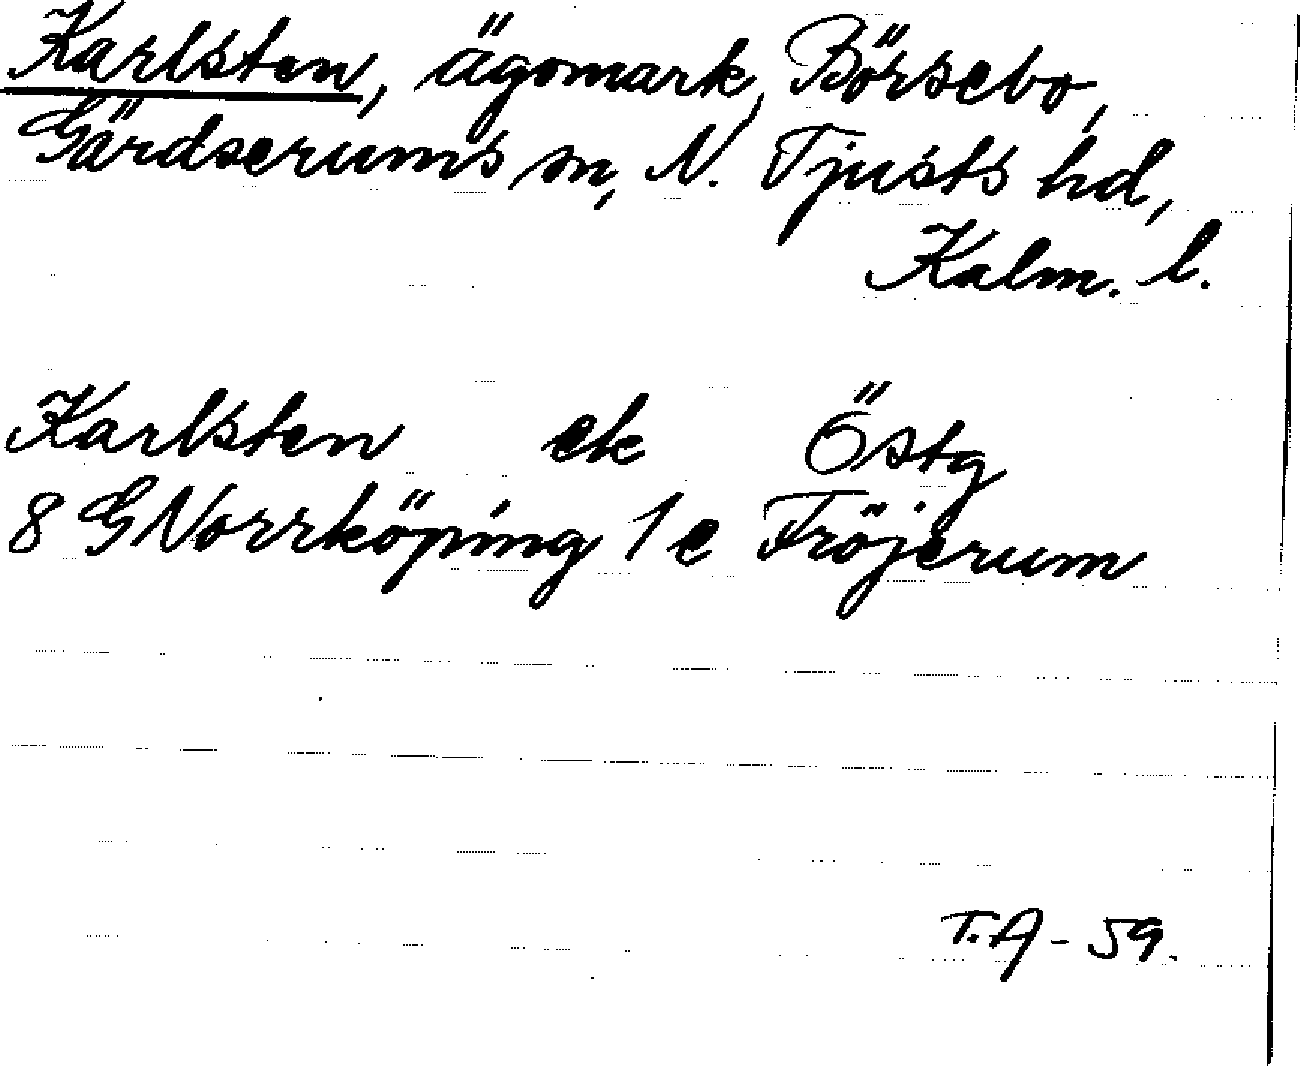 Karlsten, ägomark, Börsebo,
Gärdserums sn, N. Tjusts hd,
Kalm. l.
Karlsten ek Östg
8 G Norrköping 1 e Fröjerum
T.A - 59.